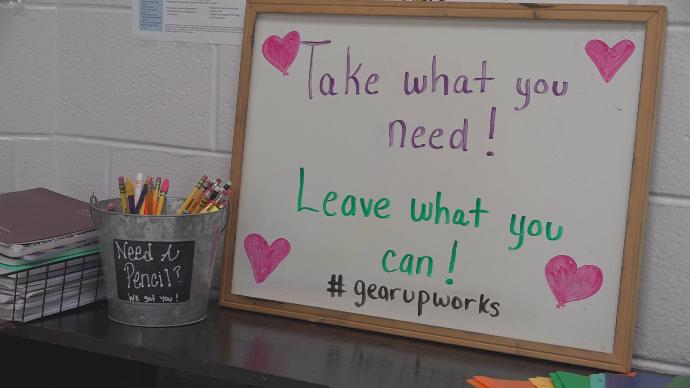 Take what you
need!
Leave what you
can!
#gearupworks
Need A
Pencil?
We got you!